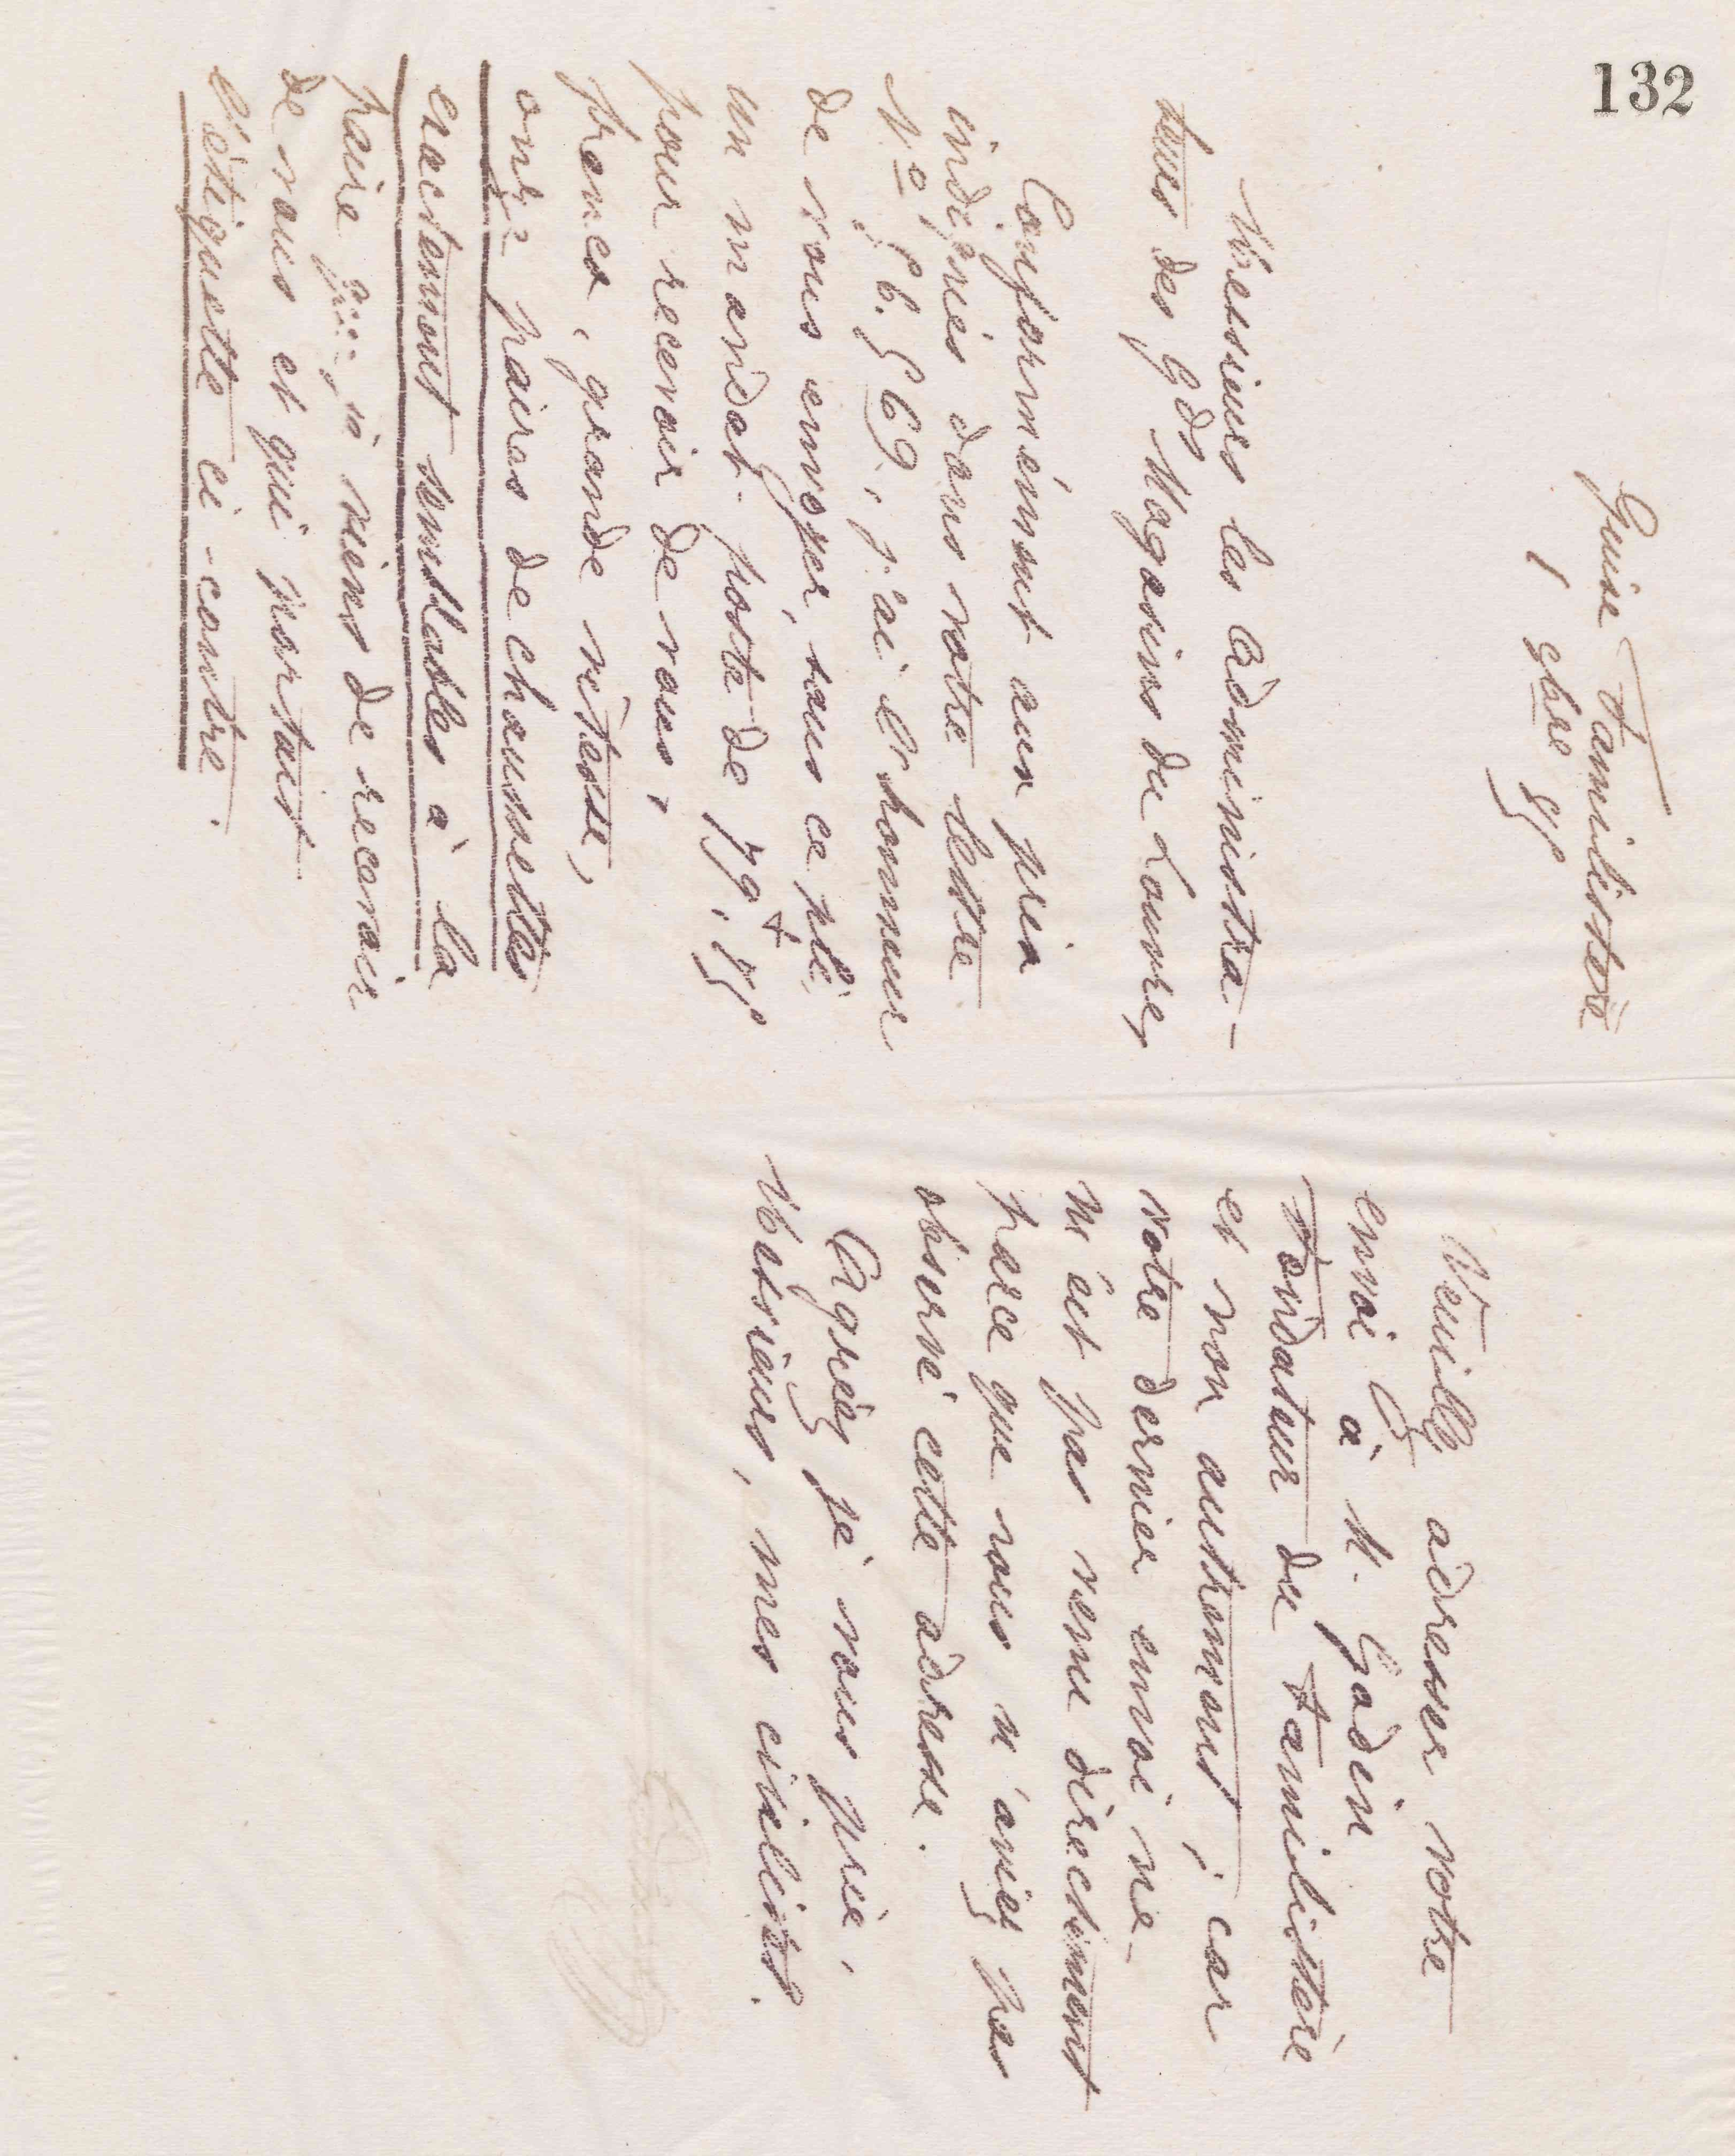 132
Guise Familistère
1 9bre 85
Messieurs les Administra-
teurs des Gds Magasins du Louvre,
Conformément aux prix
indiqués dans votre lettre
j'ai l'honneur
de vous envoyer, sous ce pli,
un mandat-poste de
pour recevoir de vous,
franco, grande vitesse,
onze paires de chaussettes
exactement semblables à la
paire que je viens de recevoir
de vous et qui portait
l'étiquette ci-contre.
Veuillez adresser votre
envoi à M. Godin
Fondateur du Familistère
et non autrement, car
votre dernier envoi ne
m'est pas venu directement
parce que vous n'aviez pas
observé cette adresse.
Agréez je vous prie,
Messieurs, mes civilités.